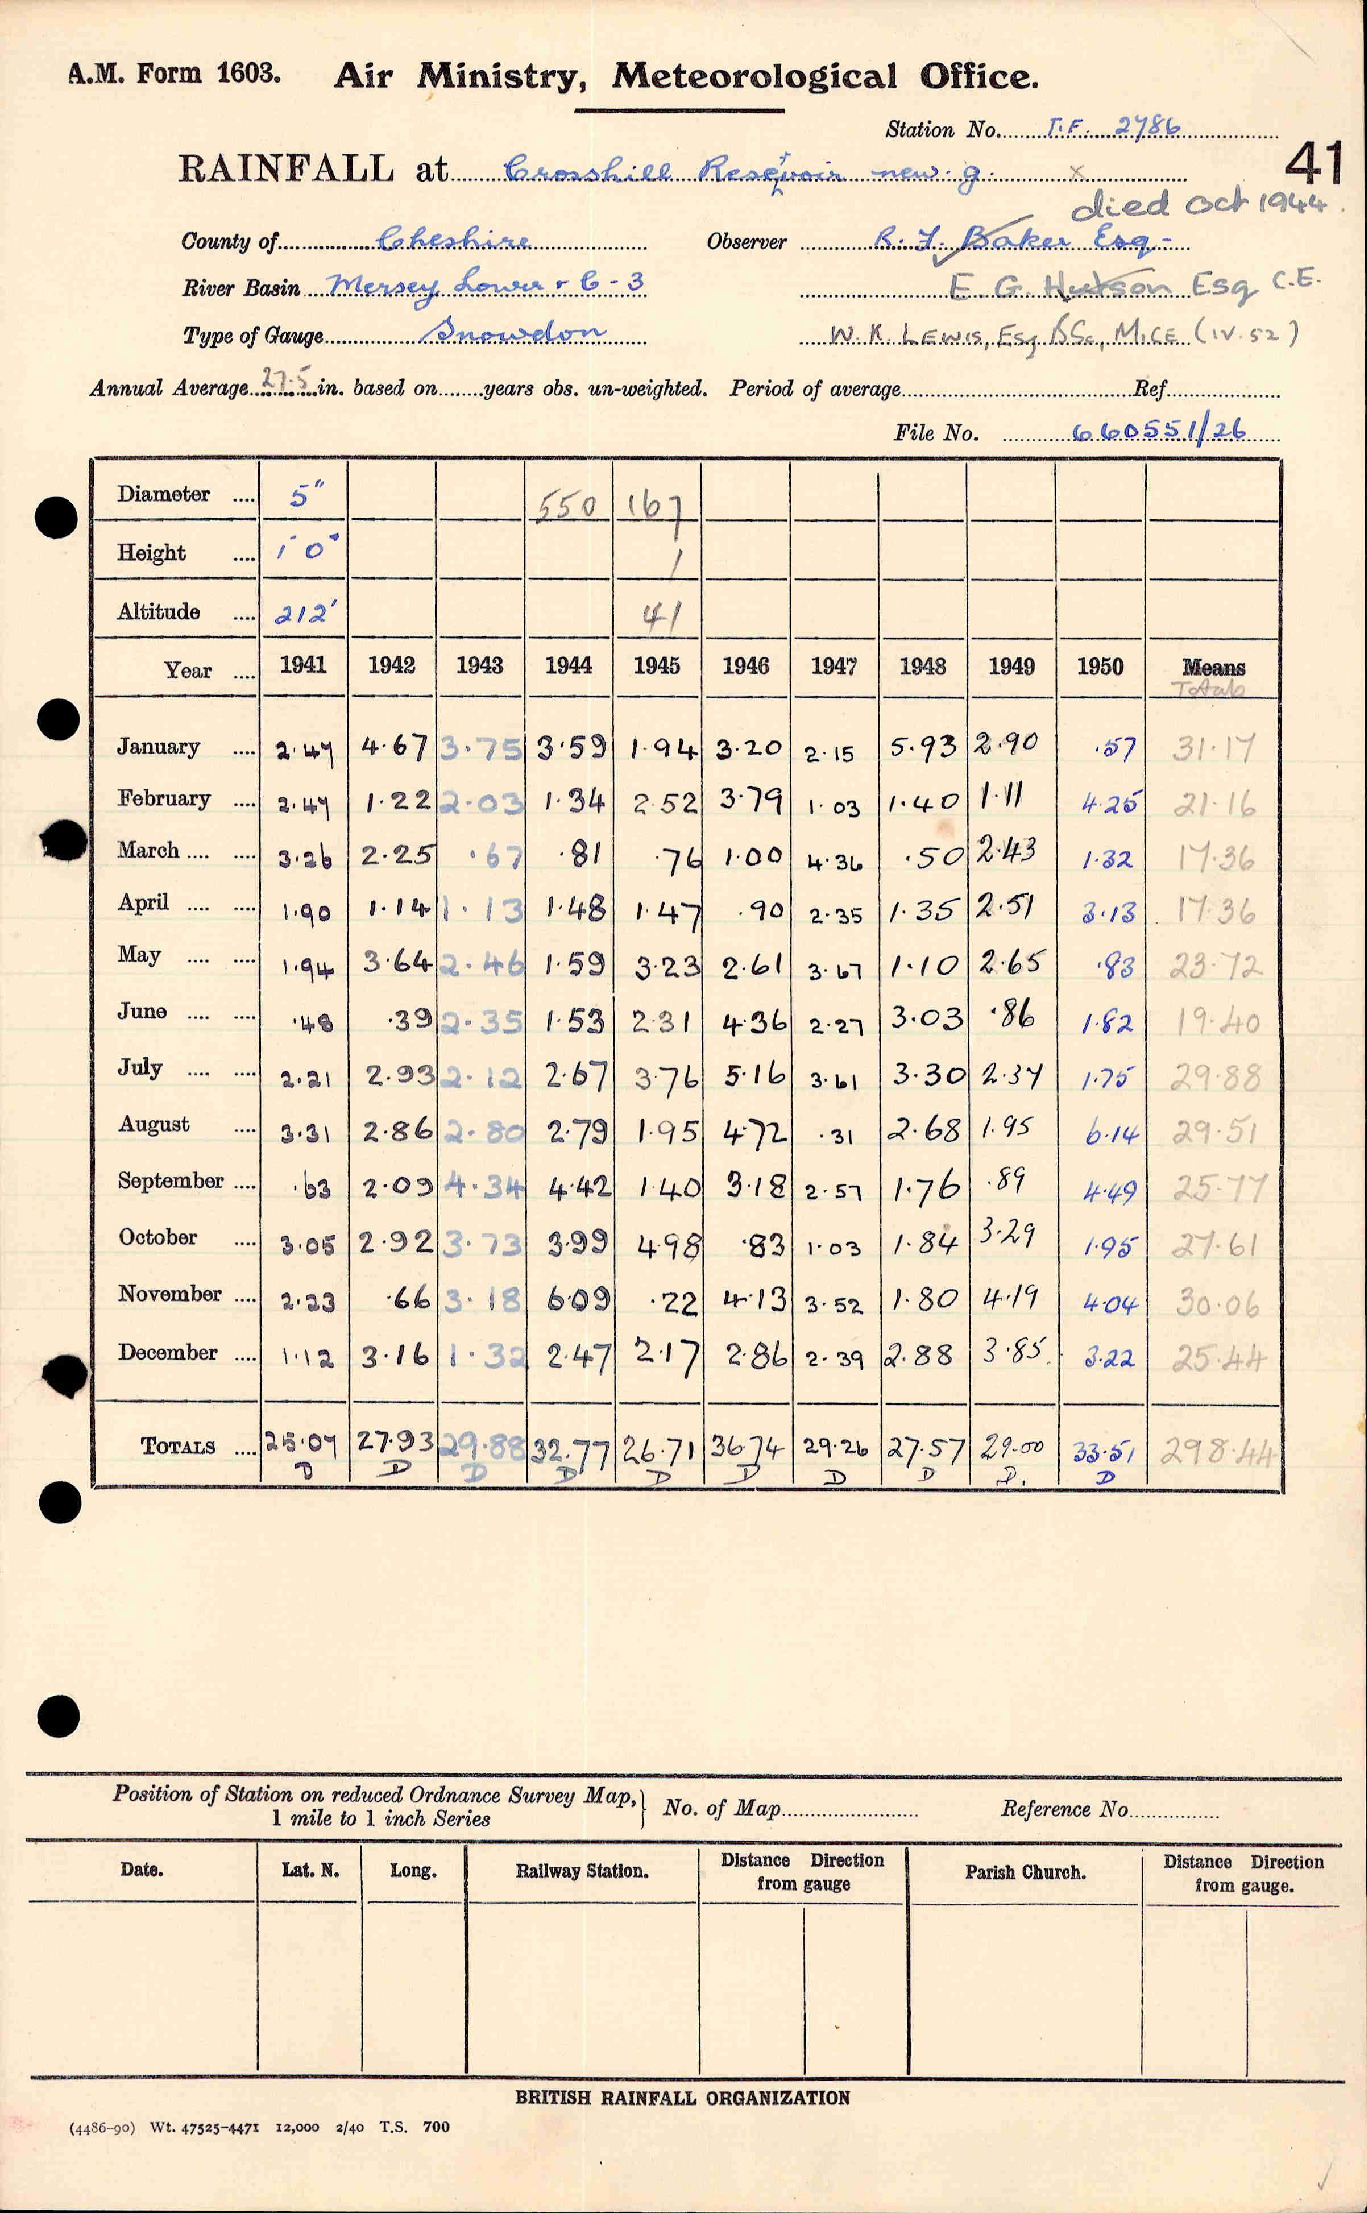 A.M. Form 1603. Air Ministry, Meteorological Office.
Station No. T.F. 2786
41
RAINFALL at Crosshill Reservoir new. g. x
died Oct 1944.
County of Cheshire Observer R. F. Baker Esq-
River Basin Mersey Lower + C - 3 E. G. Hutson Esq C.E.
Type of Gauge Snowdon W. K. LEWIS, Esq BSc, MICE (IV. 52)
Annual Average 27.5 in. based on years obs. un-weighted. Period of average Ref.
File No. 660551/26
Diameter .... 5" 550 167
Height .... 1' 0" 1
Altitude .... 212' 41
Year .... 1941 1942 1943 1944 1945 1946 1947 1948 1949 1950 Means
Totals
January .... 2.47 4.67 3.75 3.59 1.94 3.20 2.15 5.93 2.90 .57 31.17
February .... 2.47 1.22 2.03 1.34 2.52 3.79 1.03 1.40 1.11 4.25 21.16
March .... .... 3.26 2.25 .67 .81 .76 1.00 4.36 .50 2.43 1.32 17.36
April .... .... 1.90 1.14 1.13 1.48 1.47 .90 2.35 1.35 2.51 3.13 17.36
May .... .... 1.94 3.64 2.46 1.59 3.23 2.61 3.67 1.10 2.65 .83 23.72
June .... .... .48 .39 2.35 1.53 2.31 4.36 2.27 3.03 .86 1.82 19.40
July .... .... 2.21 2.93 2.12 2.67 3.76 5.16 3.61 3.30 2.37 1.75 29.88
August .... 3.31 2.86 2.80 2.79 1.95 4.72 .31 2.68 1.95 6.14 29.51
September .... .63 2.09 4.34 4.42 1.40 3.18 2.57 1.76 .89 4.49 25.77
October .... 3.05 2.92 3.73 3.99 4.98 .83 1.03 1.84 3.29 1.95 27.61
November .... 2.23 .66 3.18 6.09 .22 4.13 3.52 1.80 4.19 4.04 30.06
December .... 1.12 3.16 1.32 2.47 2.17 2.86 2.39 2.88 3.85 3.22 25.44
TOTALS .... 25.07 27.93 29.88 32.77 26.71 36.74 29.26 27.57 29.00 33.51 298.44
D D D D D D D D D. D
Position of Station on reduced Ordnance Survey Map, } No. of Map Reference No.
1 mile to 1 inch Series
Date. Lat. N. Long. Railway Station. Distance Direction Parish Church. Distance Direction
from gauge from gauge.
BRITISH RAINFALL ORGANIZATION
(4486-90) Wt. 47525-4471 12,000 2/40 T.S. 700